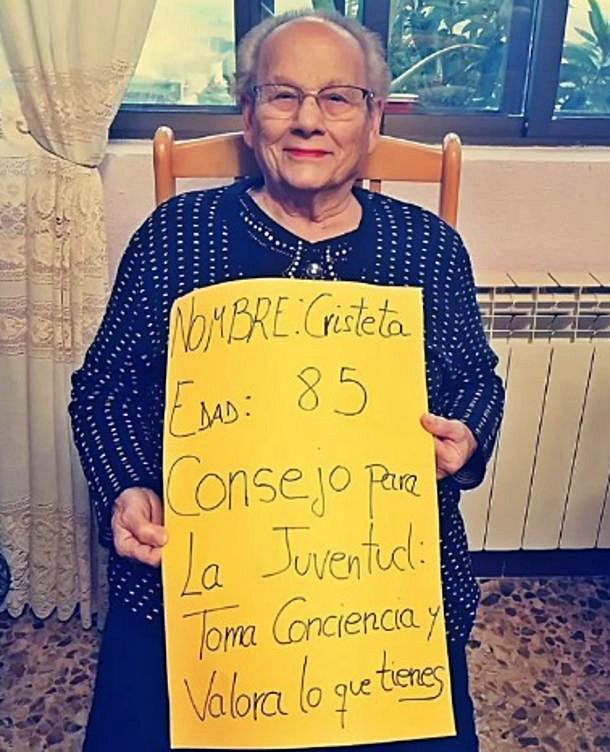 NOMBRE: Cristeta
EDAD: 85
Consejo para
La Juventud:
Toma Conciencia y
Valora lo que tienes